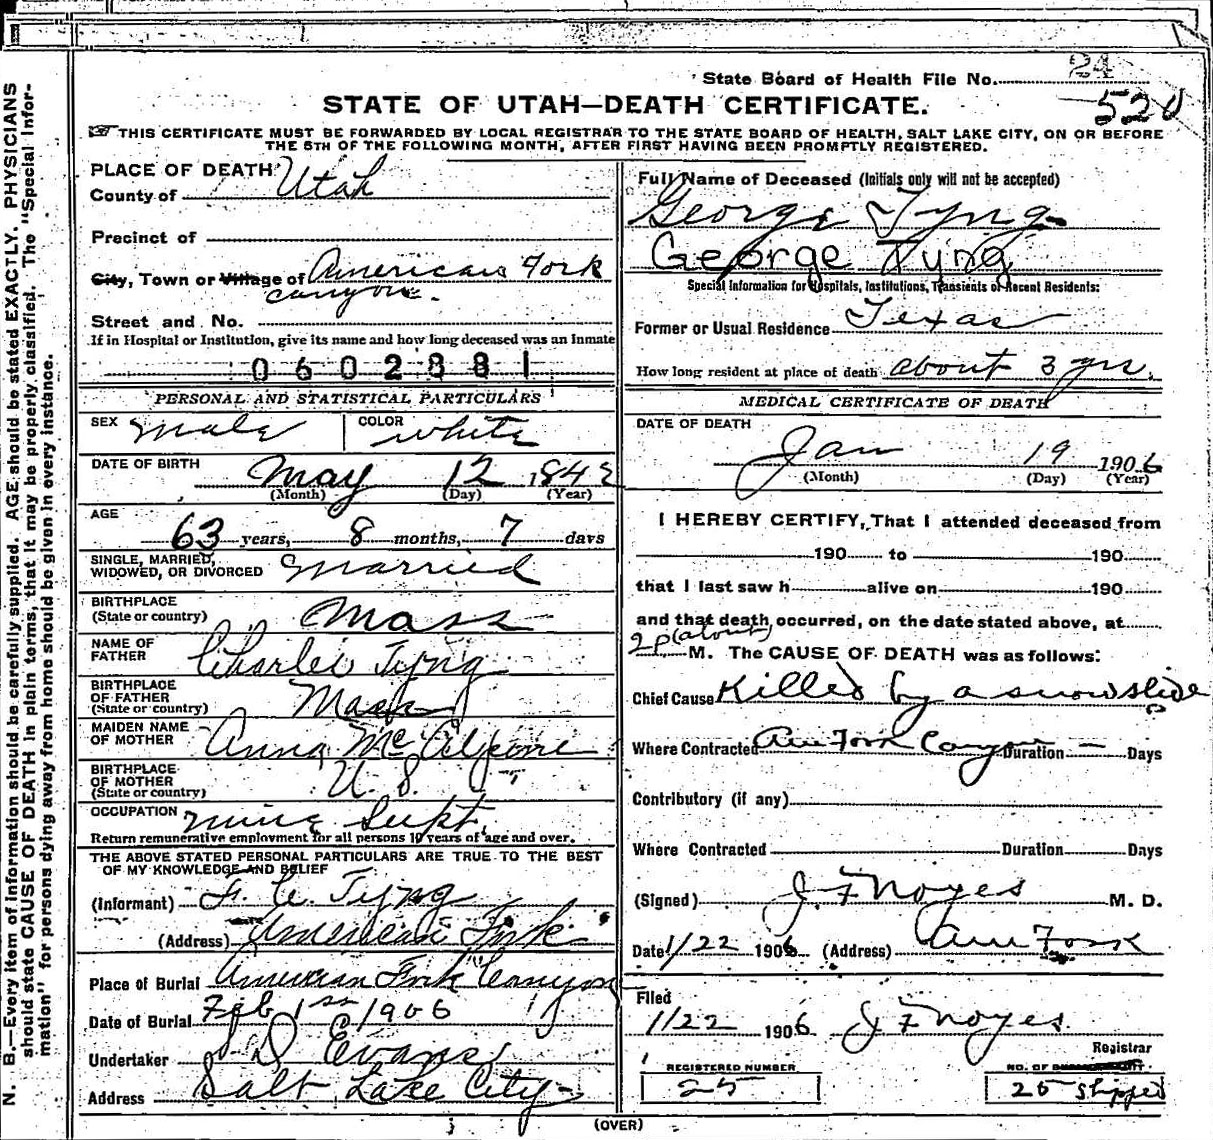 State Board of Health File No. 24
520
STATE OF UTAH—DEATH CERTIFICATE.
THIS CERTIFICATE MUST BE FORWARDED BY LOCAL REGISTRAR TO THE STATE BOARD OF HEALTH, SALT LAKE CITY, ON OR BEFORE
THE 5TH OF THE FOLLOWING MONTH, AFTER FIRST HAVING BEEN PROMPTLY REGISTERED.
N. B.—Every item of information should be carefully supplied. AGE should be stated EXACTLY. PHYSICIANS
should state CAUSE OF DEATH in plain terms, that it may be properly classified. The "Special Infor-
mation" for persons dying away from home should be given in every instance.
PLACE OF DEATH:
County of Utah
Precinct of
City, Town or Village of American Fork
canyon.
Street and No.
If in Hospital or Institution, give its name and how long deceased was an inmate
0602881
PERSONAL AND STATISTICAL PARTICULARS
SEX Male COLOR White
DATE OF BIRTH May 12 1842
(Month) (Day) (Year)
AGE
63 years, 8 months, 7 days
SINGLE, MARRIED,
WIDOWED, OR DIVORCED Married
BIRTHPLACE
(State or country) Mass
NAME OF
FATHER Charles Tyng
BIRTHPLACE
OF FATHER
(State or country) Mass
MAIDEN NAME
OF MOTHER Anna Mc
BIRTHPLACE
OF MOTHER
(State or country) U. S.
OCCUPATION mine Supt.
Return remunerative employment for all persons 10 years of age and over.
THE ABOVE STATED PERSONAL PARTICULARS ARE TRUE TO THE BEST
OF MY KNOWLEDGE AND BELIEF
(Informant) F. C. Tyng
(Address) American Fork
Place of Burial American Fork Canyon
Date of Burial Feb 1st 1906
Undertaker Evans
Address Salt Lake City
Full Name of Deceased (Initials only will not be accepted)
George Tyng
George Tyng
Special Information for Hospitals, Institutions, Transients or Recent Residents:
Former or Usual Residence Texas
How long resident at place of death about 3 yrs.
MEDICAL CERTIFICATE OF DEATH
DATE OF DEATH
Jan 19 1906
(Month) (Day) (Year)
I HEREBY CERTIFY, That I attended deceased from
190 to 190
that I last saw h alive on 190
and that death occurred, on the date stated above, at
2 p (about) M. The CAUSE OF DEATH was as follows:
Chief Cause Killed by a snowslide
Where Contracted Am Fork Canyon Duration — Days
Contributory (if any)
Where Contracted Duration Days
(Signed) J. F Noyes M. D.
Date 1/22 1906 (Address) Am Fork
Filed
1/22 1906 J F Noyes
Registrar
REGISTERED NUMBER
25
NO. OF
25 shipped
(OVER)